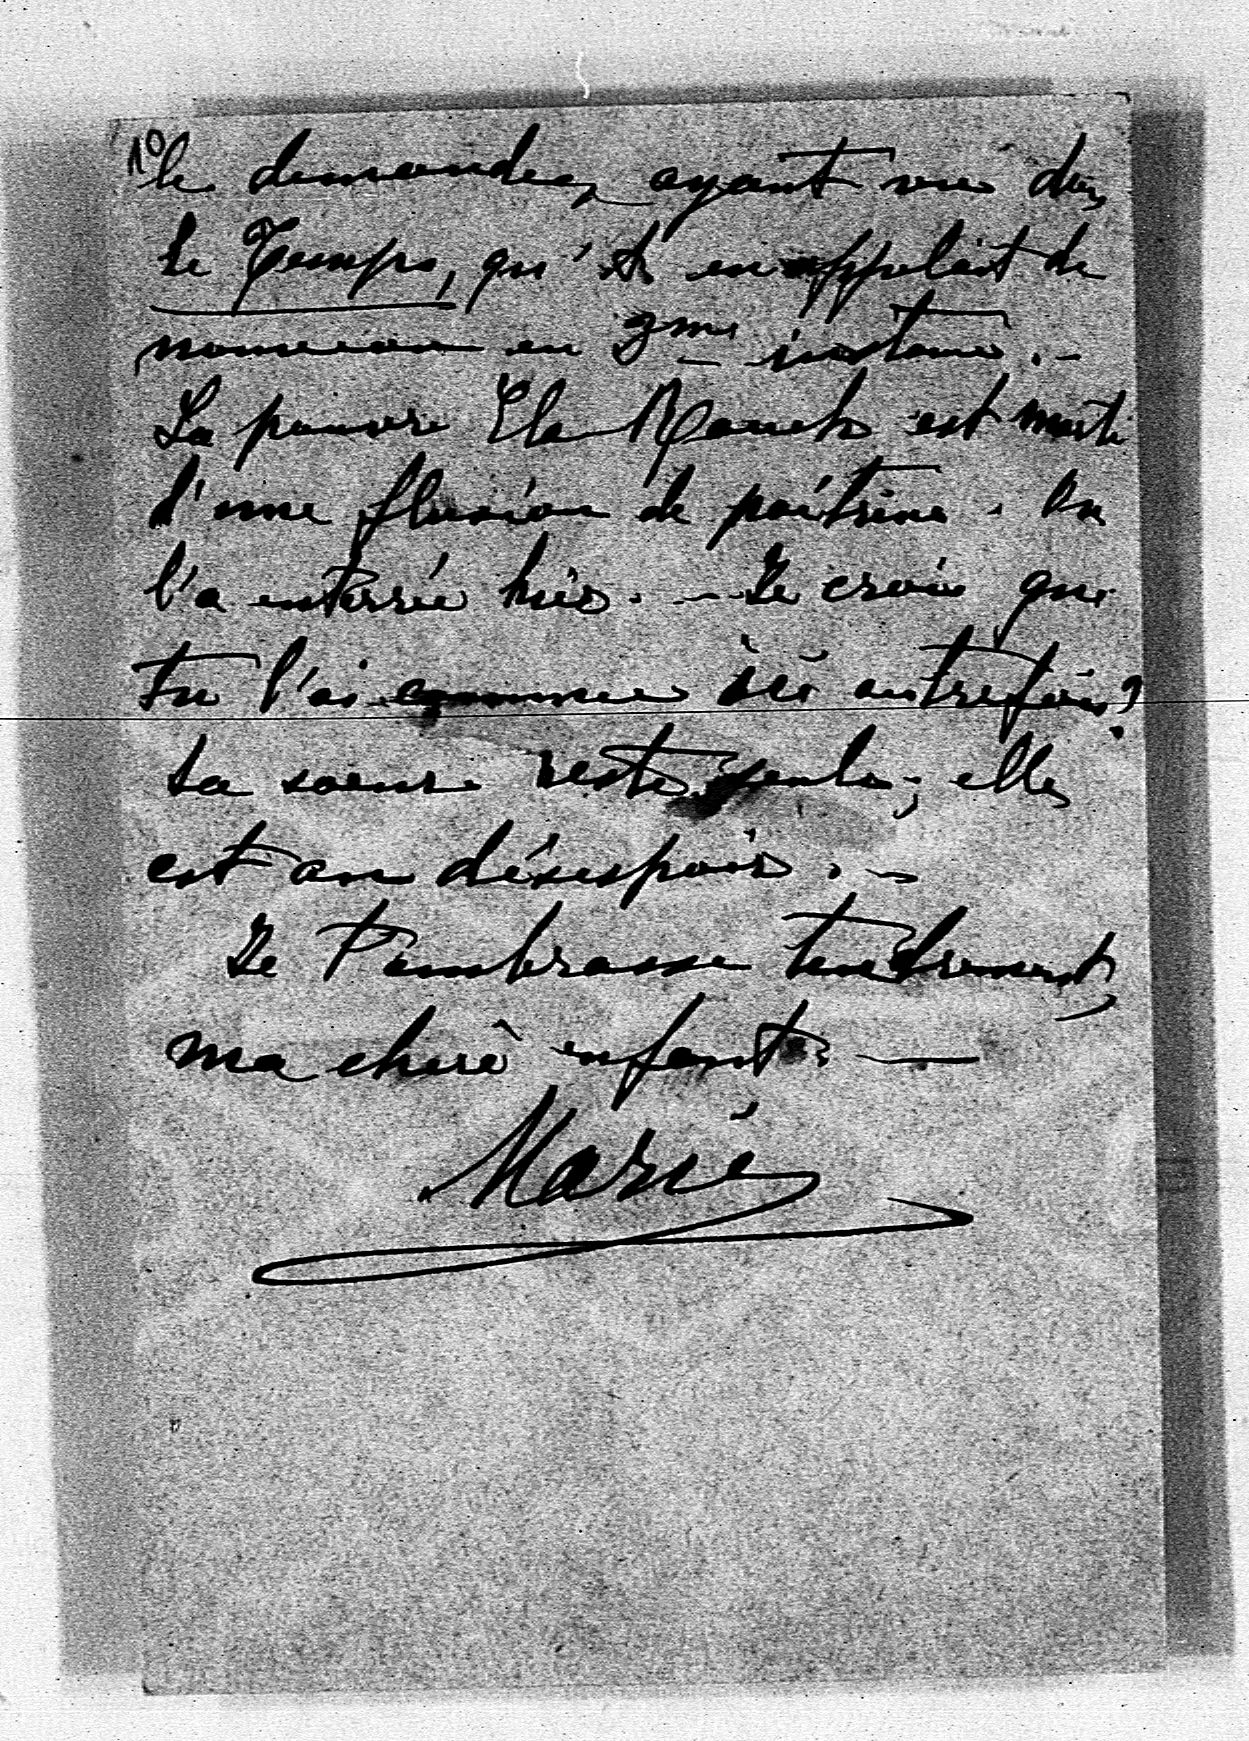 10
le demander, ayant vu dans
Le Temps, qu'il en appelait de
nouveau en 2me instance. –
La pauvre Ela est morte
d'une fluxion de poitrine. On
l'a enterrée hier. – Je crois que
tu l'as connue ici autrefois?
Sa soeur reste seule; elle
est au désespoir. –
Je t'embrasse tendrement,
ma chère enfant. —
Marie